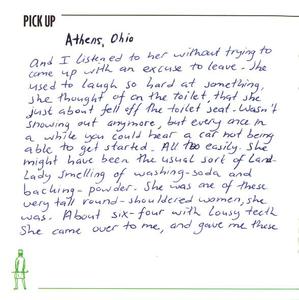 PICK UP
Athens, Ohio
And I listened to her without trying to
come up with an excuse to leave. She
used to laugh so hard at something,
she thought of on the toilet, that she
just about fell off the toilet seat. Wasn't
snowing out anymore, but every once in
a while you could hear a car not being
able to get started. All too easily. She
might have been the usual sort of land-
Lady smelling of washing-soda and
backing-powder. She was one of these
very tall round-shouldered women, she
was. About six-four with lousy teeth
She came over to me, and gave me these